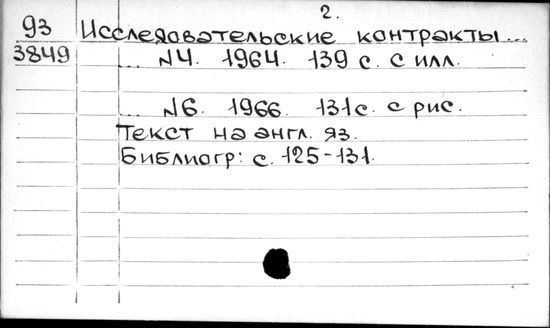 2.
93 Исследовательские контракты...
3849 ... N4. 1964. 139 с. с илл.
... N6. 1966. 131с. с рис.
Текст на англ. яз.
Библиогр: с. 125-131.